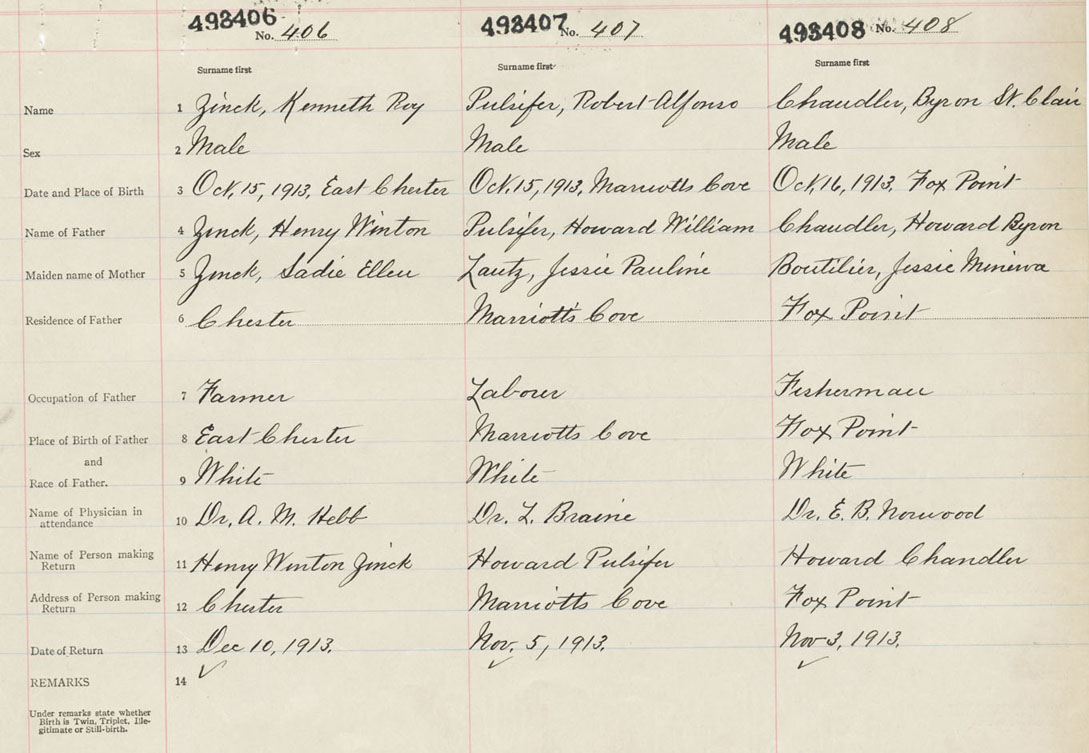 493406 No. 406 493407 No. 407 493408 No. 408
Surname first Surname first Surname first
Name 1 Zinck, Kenneth Roy Pulsifer, Robert Alfonso Chandler, Byron St. Clair
Sex 2 Male Male Male
Date and Place of Birth 3 Oct. 15, 1913, East Chester Oct. 15, 1913, Marriotts Cove Oct. 16, 1913, Fox Point
Name of Father 4 Zinck, Henry Winton Pulsifer, Howard William Chandler, Howard Byron
Maiden name of Mother 5 Zinck, Sadie Ellen Lantz, Jessie Pauline Boutilier, Jessie Minerva
Residence of Father 6 Chester Marriott's Cove Fox Point
Occupation of Father 7 Farmer Laborer Fisherman
Place of Birth of Father 8 East Chester Marriotts Cove Fox Point
and
Race of Father. 9 White White White
Name of Physician in
attendance 10 Dr. A. M. Hebb Dr. L. Braine Dr. E. B. Norwood
Name of Person making
Return 11 Henry Winton Zinck Howard Pulsifer Howard Chandler
Address of Person making
Return 12 Chester Marriotts Cove Fox Point
Date of Return 13 Dec 10, 1913. Nov. 5, 1913. Nov 3, 1913.
REMARKS 14
Under remarks state whether
Birth is Twin, Triplet, Ille-
gitimate or Still-birth.